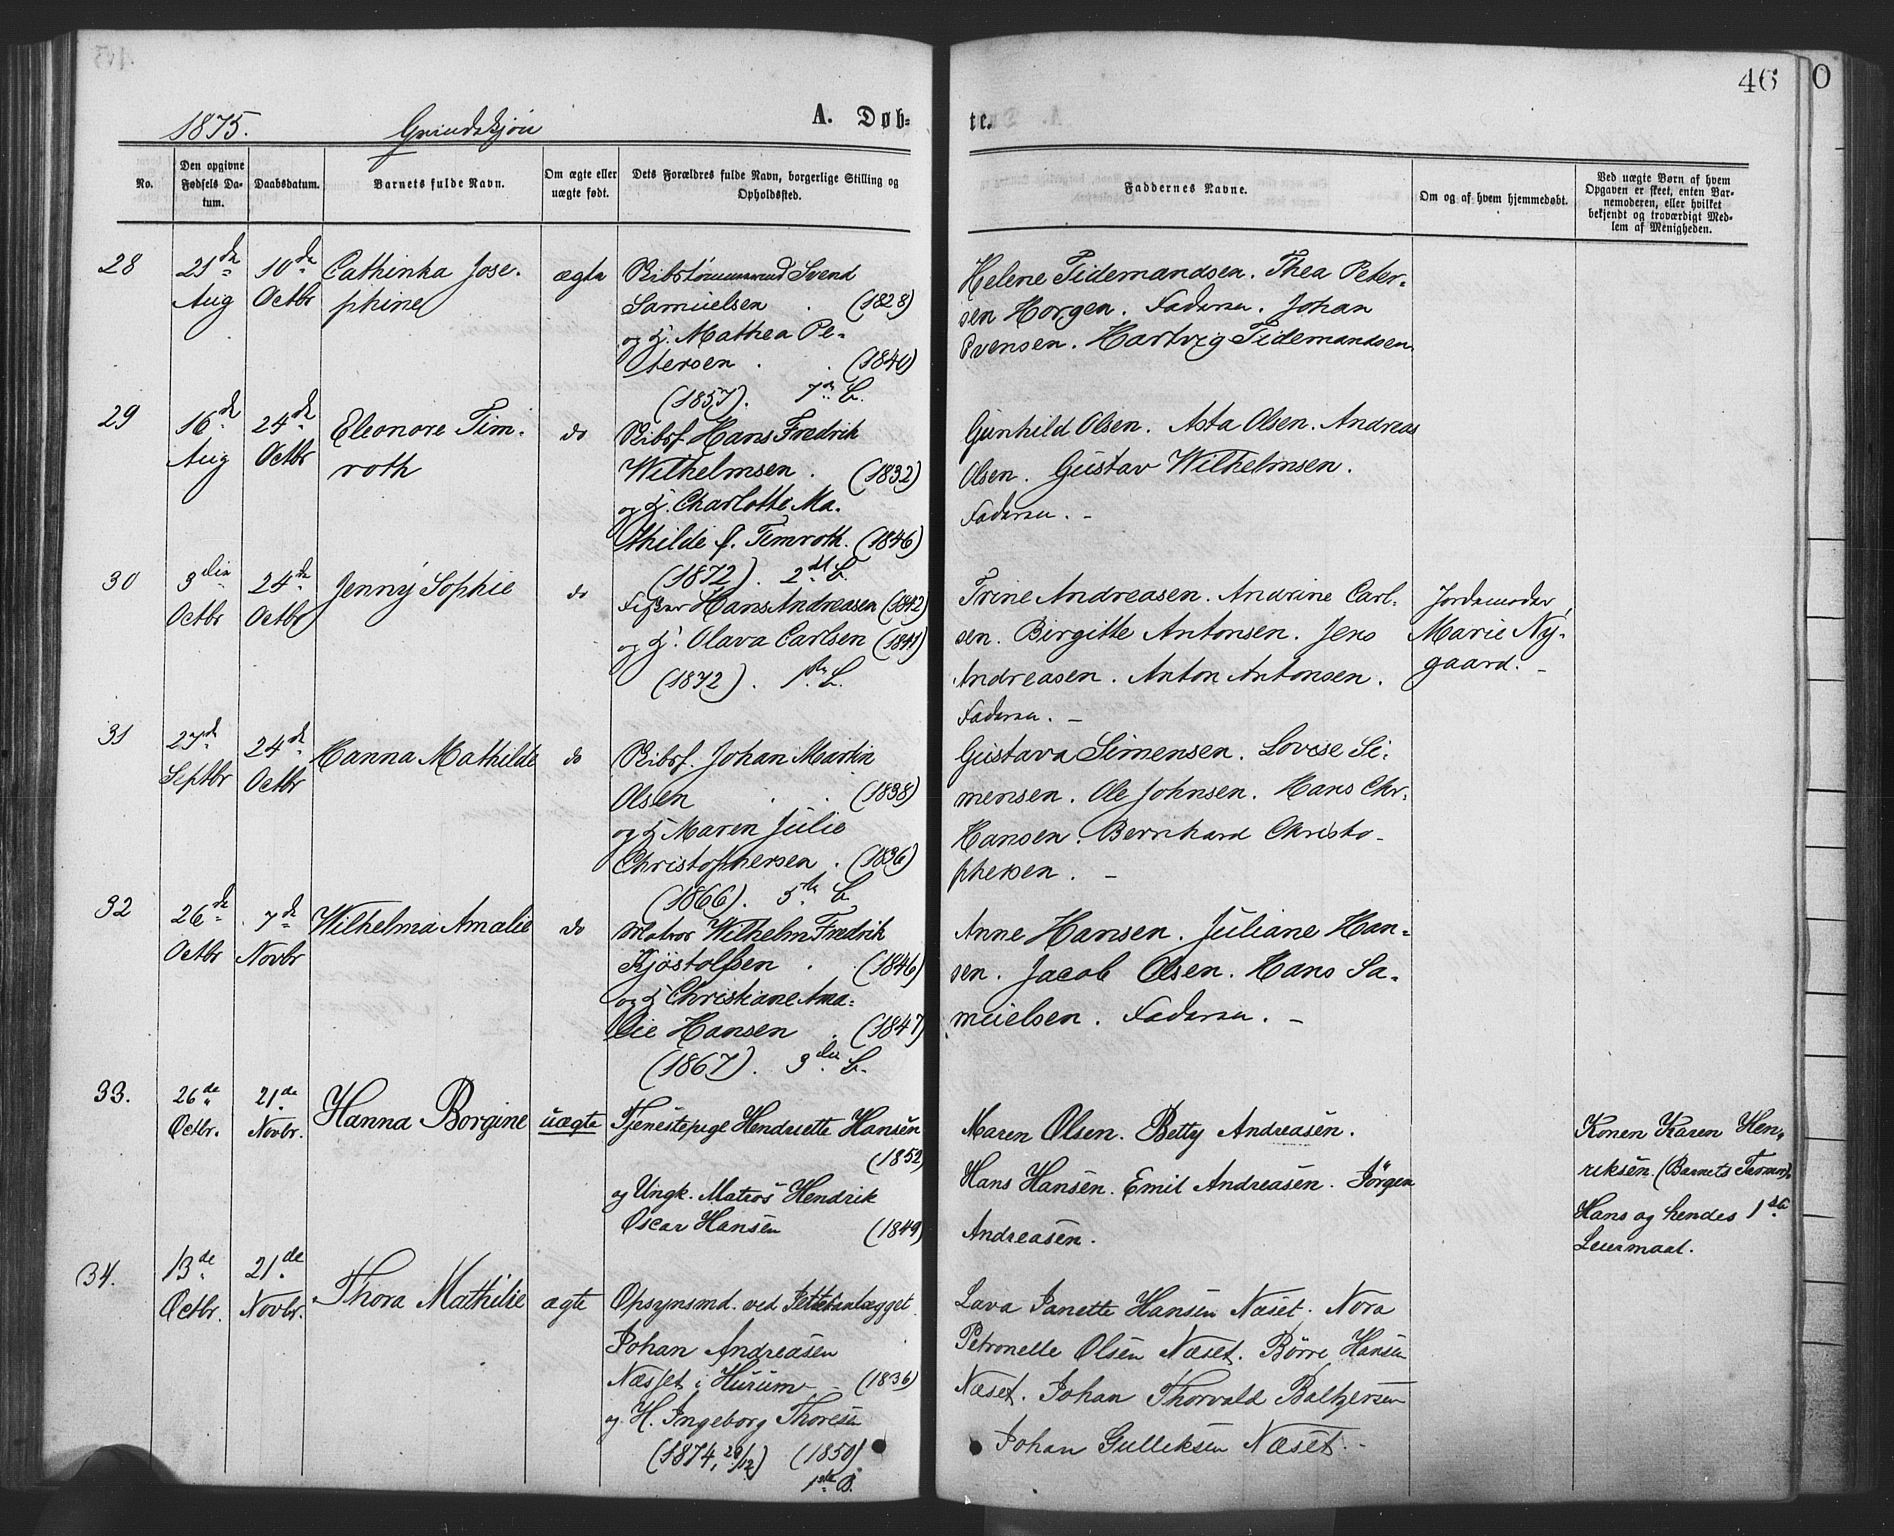 46
0
1875. Grindskjøn
A. Døb-
te.
No.
Den opgivne Fødsels Da-
tum.
Daabsdatum.
Barnets fulde Navn.
Om ægte eller
uægte født.
Dets Forældres fulde Navn, borgerlige Stilling og
Opholdssted.
Faddernes Navne.
Om og af hvem hjemmedøbt.
Ved uægte Børn af hvem
Opgaven er skeet, enten Bar-
nemoderen, eller hvilket
bekjendt og troværdigt Med-
lem af Menigheden.
28
21de
Aug
10de
Octbr
Cathinka Jose-
phine
ægte
Svend
Samuelsen (1828)
og H. Mathea Pe-
tersen (1840)
(1857). 7de B.
Helene Tidemandsen. Thea Peter-
sen Horgen. Faderen. Johan
Svensen. Hartvig Tidemandsen.
29
16de
Aug
24de
Octbr
Eleonore Tim-
roth
do
Hans Fredrik
Wilhelmsen. (1832)
og H. Charlotte Ma-
thilde f. Timroth. (1846)
(1872). 2det B.
Gunhild Olsen. Asta Olsen. Andreas
Olsen. Gustav Wilhelmsen.
Faderen. –
30
3die
Octbr
24de
Octbr
Jenny Sophie
do
Fisker Hans Andreasen (1842)
og H. Olava Carlsen (1841)
(1872). 1ste B.
Trine Andreasen. Andrine Carl-
sen. Birgitte Antonsen. Jens
Andreasen. Anton Antonsen.
Faderen. –
Jordemoder
Marie Ny-
gaard. –
31
27de
Septbr
24de
Octbr
Hanna Mathilde
do
Johan Martin
Olsen (1838)
og H. Maren Julie
Christophersen. (1836)
(1866). 5te B.
Gustava Simensen. Lovise Si-
mensen. Ole Johnsen. Hans Chr.
Hansen. Bernhard Christo-
phersen. –
32
26de
Octbr
7de
Novbr
Wilhelma Amalie
do
Matros Wilhelm Fredrik
Kjøstolfsen. (1846)
og H. Christiane Ama-
lie Hansen. (1847)
(1867). 3die B.
Anne Hansen. Juliane Han-
sen. Jacob Olsen. Hans Sa-
muelsen. Faderen. –
33.
26de
Octbr.
21de
Novbr.
Hanna Borgine
uægte
Tjenestepige Hendriette Hansen
(1852)
og Ungk. Matros Hendrik
Oscar Hansen (1849)
Maren Olsen. Betty Andreasen.
Hans Hansen. Emil Andreasen. Jørgen
Andreasen.
Konen Karen Hen-
riksen (Barnets
Hans og hendes 1ste
Leiermaal.
34.
13de
Octbr.
21de
Novbr.
Thora Mathilie
ægte
Opsynsmd. ved
Johan Andreasen
Næsset i Hurum (1836)
og H. Ingeborg Thoresen
(1874, 29/12) (1850)
1ste B.
Lava Janette Hansen Næset. Nora
Petronelle Olsen Næset. Børre Hansen
Næset. Johan Thorvald Baltzersen
Johan Gulleksen Næset. –